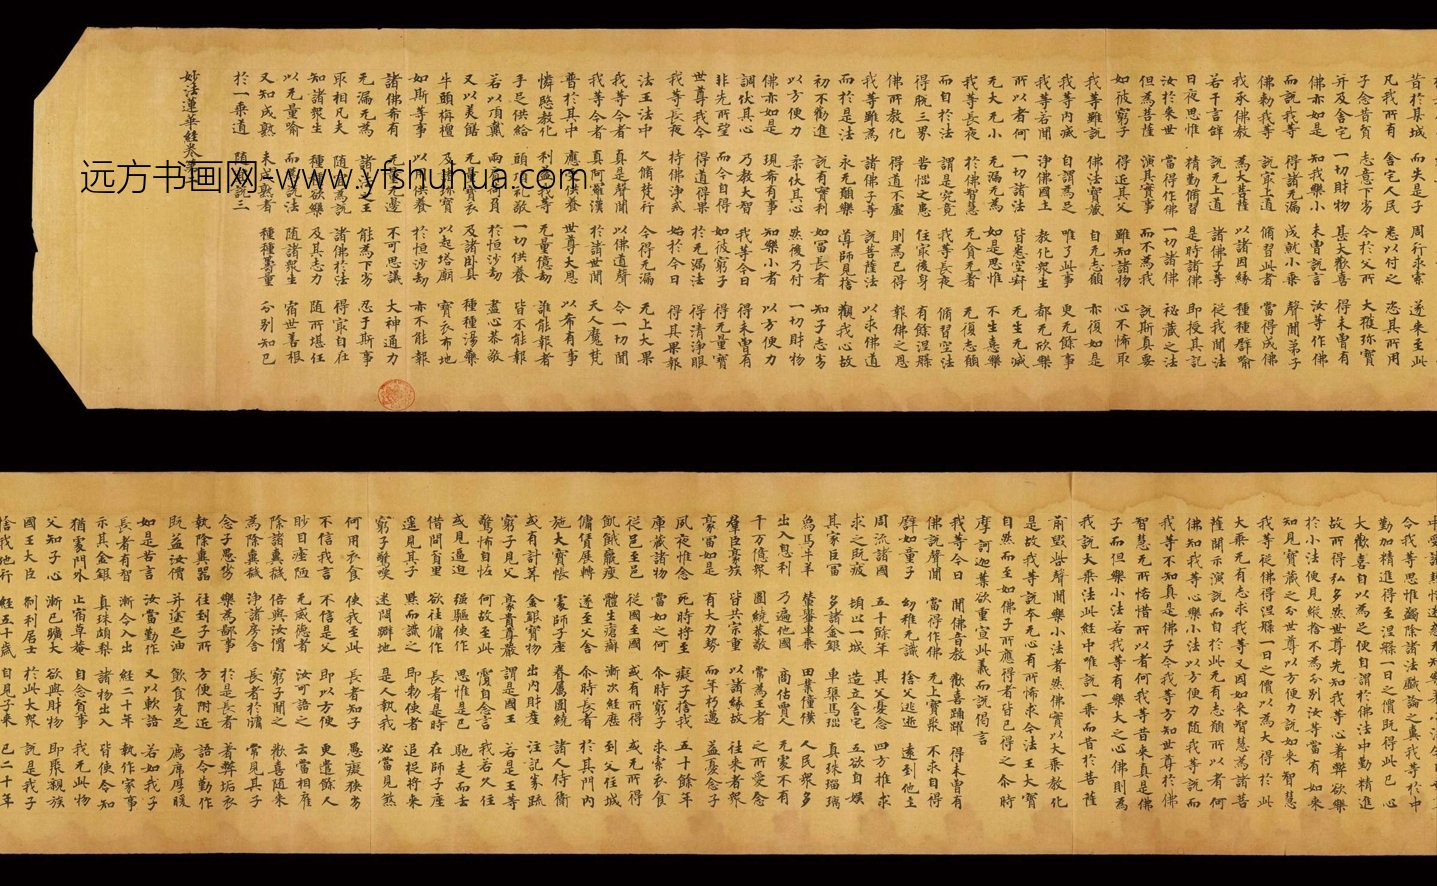 昔於某城 而失是子 周行求索 遂來至此
凡我所有 舍宅人民 悉以付之 恣其所用
子念昔貧 志意下劣 今於父所 大獲珍寶
并及舍宅 一切財物 甚大歡喜 得未曾有
佛亦如是 知我樂小 未曾說言 汝等作佛
而說我等 得諸无漏 成就小乘 聲聞弟子
佛勑我等 說㝡上道 脩習此者 當得成佛
我承佛教 為大菩薩 以諸因緣 種種譬喻
若干言辭 說无上道 諸佛子等 從我聞法
日夜思惟 精勤脩習 是時諸佛 即授其記
汝於來世 當得作佛 一切諸佛 秘藏之法
但為菩薩 演其實事 而不為我 說斯真要
如彼窮子 得近其父 雖知諸物 心不悕取
我等雖說 佛法寶藏 自无志願 亦復如是
我等內滅 自謂為足 唯了此事 更无餘事
我等若聞 淨佛國土 教化眾生 都无欣樂
所以者何 一切諸法 皆悉空寂 无生无滅
无大无小 无漏无為 如是思惟 不生憙樂
我等長夜 於佛智慧 无貪无著 无復志願
而自於法 謂是究竟 我等長夜 脩習空法
得脫三界 苦惱之患 住㝡後身 有餘涅槃
佛所教化 得道不虛 則為已得 報佛之恩
我等雖為 諸佛子等 說菩薩法 以求佛道
而於是法 永无願樂 導師見捨 觀我心故
初不勸進 說有實利 如富長者 知子志劣
以方便力 柔伏其心 然後乃付 一切財物
佛亦如是 現希有事 知樂小者 以方便力
調伏其心 乃教大智 我等今日 得未曾有
非先所望 而今自得 如彼窮子 得无量寶
世尊我今 得道得果 於无漏法 得清淨眼
我等長夜 持佛淨戒 始於今日 得其果報
法王法中 久脩梵行 今得无漏 无上大果
我等今者 真是聲聞 以佛道聲 令一切聞
我等今者 真阿羅漢 於諸世間 天人魔梵
普於其中 應受供養 世尊大恩 以希有事
憐愍教化 利益我等 无量億劫 誰能報者
手足供給 頭頂禮敬 一切供養 皆不能報
若以頂戴 兩肩荷負 於恒沙劫 盡心恭敬
又以美饍 无量寶衣 及諸臥具 種種湯藥
牛頭栴檀 及諸珍寶 以起塔廟 寶衣布地
如斯等事 以用供養 於恒沙劫 亦不能報
諸佛希有 无量无邊 不可思議 大神通力
无漏无為 諸法之王 能為下劣 忍于斯事
取相凡夫 隨宜為說 諸佛於法 得㝡自在
知諸眾生 種種欲樂 及其志力 隨所堪任
以无量喻 而為說法 隨諸眾生 宿世善根
又知成熟 未成熟者 種種籌量 分別知已
於一乘道 隨宜說三
妙法蓮華經卷第
远方书画网-www.yfshuhua.com
令我等思惟蠲除諸法戲論之糞我等於中
勤加精進得至涅槃一日之價既得此已心
大歡喜自以為足便自謂於佛法中勤精進
故所得弘多然世尊先知我等心著弊欲樂
於小法便見縱捨不為分別汝等當有如來
知見寶藏之分世尊以方便力說如來智慧
我等從佛得涅槃一日之價以為大得於此
大乘无有志求我等又因如來智慧為諸菩
薩開示演說而自於此无有志願所以者何
佛知我等心樂小法以方便力隨我等說而
我等不知真是佛子今我等方知世尊於佛
智慧无所悋惜所以者何我等昔來真是佛
子而但樂小法若我等有樂大之心佛則為
我說大乘法此經中唯說一乘而昔於菩薩
前毀呰聲聞樂小法者然佛實以大乘教化
是故我等說本无心有所悕求今法王大寶
自然而至如佛子所應得者皆已得之尒時
摩訶迦葉欲重宣此義而說偈言
我等今日 聞佛音教 歡喜踊躍 得未曾有
佛說聲聞 當得作佛 无上寶聚 不求自得
譬如童子 幼稚无識 捨父逃逝 遠到他土
周流諸國 五十餘年 其父憂念 四方推求
求之既疲 頓止一城 造立舍宅 五欲自娛
其家巨富 多諸金銀 車𤦲馬瑙 真珠瑠璃
象馬牛羊 輦輿車乘 田業僮僕 人民眾多
出入息利 乃遍他國 商估賈人 无處不有
千万億眾 圍繞恭敬 常為王者 之所愛念
羣臣豪族 皆共宗重 以諸緣故 往來者眾
豪富如是 有大力勢 而年朽邁 益憂念子
夙夜惟念 死時將至 癡子捨我 五十餘年
庫藏諸物 當如之何 尒時窮子 求索衣食
從邑至邑 從國至國 或有所得 或无所得
飢餓羸瘦 體生瘡癬 漸次經歷 到父住城
傭賃展轉 遂至父舍 尒時長者 於其門內
施大寶帳 處師子座 眷屬圍繞 諸人侍衛
或有計算 金銀寶物 出內財產 注記券疏
窮子見父 豪貴尊嚴 謂是國王 若是王等
驚怖自怪 何故至此 覆自念言 我若久住
或見逼迫 强驅使作 思惟是已 馳走而去
借問貧里 欲往傭作 長者是時 在師子座
遙見其子 默而識之 即勑使者 追捉將來
窮子驚喚 迷悶躄地 是人執我 必當見煞
何用衣食 使我至此 長者知子 愚癡狹劣
不信我言 不信是父 即以方便 更遣餘人
眇目痤陋 无威德者 汝可語之 云當相雇
除諸糞穢 倍與汝價 窮子聞之 歡喜隨來
為除糞穢 淨諸房舍 長者於牖 常見其子
念子愚劣 樂為鄙事 於是長者 著弊垢衣
執除糞器 往到子所 方便附近 語令勤作
既益汝價 并塗足油 飲食充足 薦席厚暖
如是苦言 汝當勤作 又以軟語 若如我子
長者有智 漸令入出 經二十年 執作家事
示其金銀 真珠頗梨 諸物出入 皆使令知
猶處門外 止宿草庵 自念貧事 我无此物
父知子心 漸已曠大 欲與財物 即聚親族
國王大臣 剎利居士 於此大眾 說是我子
捨我他行 經五十歲 自見子來 已二十年